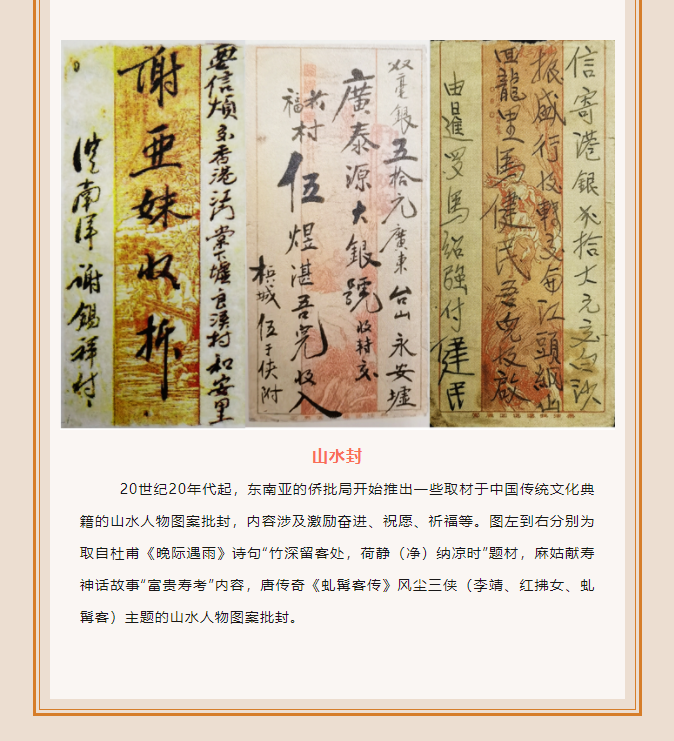 要信煩交香港灣棠下墟良溪村和安里
謝亞妹收拆
港南洋謝錫祥付
双毫銀五拾元廣東台山永安墟
廣泰源大銀號收轉交
福村
伍煜湛吾兒收入
槟城伍于俠附
信寄港銀贰拾大元交白沙
振盛行投轉交
江頭
回龍里馬健民吾兒收啟
由暹罗馬紹強付
健民
山水封
20世纪20年代起，东南亚的侨批局开始推出一些取材于中国传统文化典
籍的山水人物图案批封，内容涉及激励奋进、祝愿、祈福等。图左到右分别为
取自杜甫《晚际遇雨》诗句“竹深留客处，荷静（净）纳凉时”题材，麻姑献寿
神话故事“富贵寿考”内容，唐传奇《虬髯客传》风尘三侠（李靖、红拂女、虬
髯客）主题的山水人物图案批封。